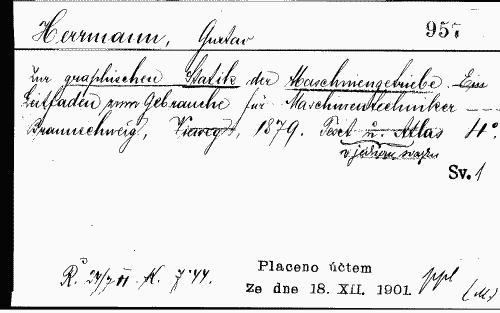 Herrmann, Gustav 957
Zur graphischen Statik der Maschinengetriebe. Ein
Leitfaden zum Gebrauche für Maschinentechniker
Braunschweig, Vieweg, 1879. Text u. Atlas 4°.
v jednom svazku
Sv. 1
K. 7·44.
Placeno účtem
ze dne 18. XII. 1901. ppl